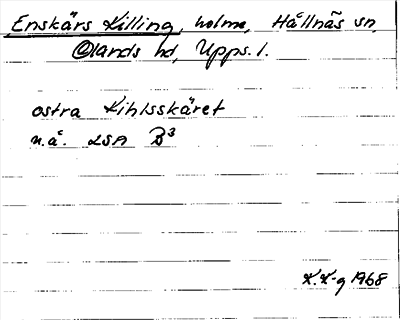 Enskärs Killing, holme, Hållnäs sn,
Olands hd, Upps. l.
ostra Kihlsskäret
n.å. LSA B³
K.K-g 1968